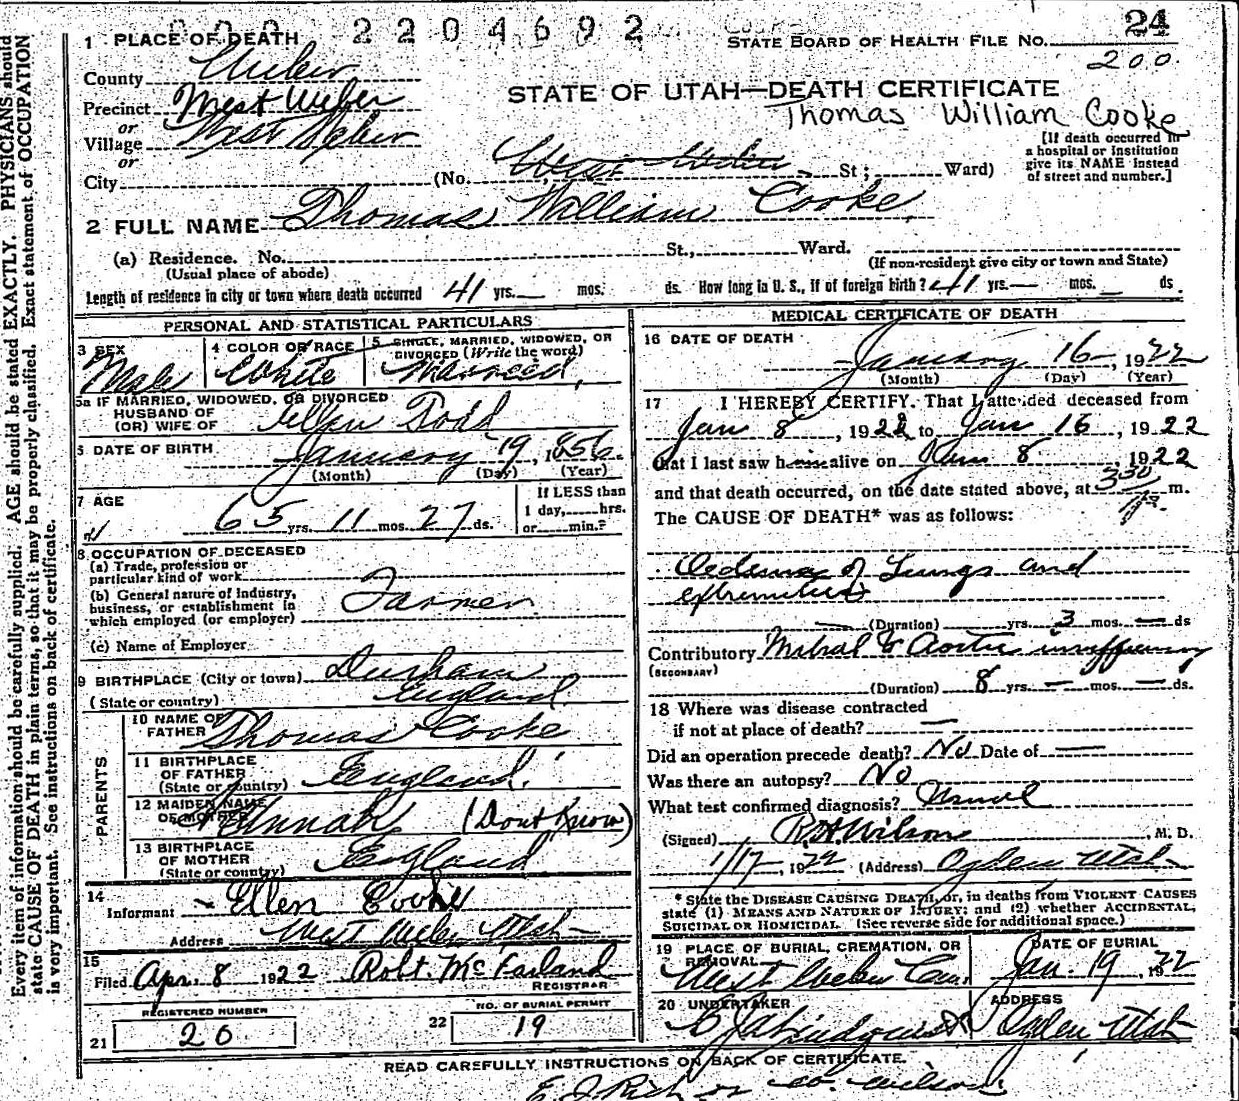 2204692
24
STATE BOARD OF HEALTH FILE NO.
200.
1 PLACE OF DEATH
County Weber
STATE OF UTAH—DEATH CERTIFICATE
Precinct West Weber
Thomas William Cooke
or
Village West Weber
or
City (No. West Weber St; Ward)
[If death occurred in a hospital or institution give its NAME instead of street and number.]
2 FULL NAME Thomas William Cooke
(a) Residence. No. St., Ward.
(Usual place of abode) (If non-resident give city or town and State)
Length of residence in city or town where death occurred 41 yrs. — mos. ds. How long in U. S., if of foreign birth? 41 yrs. — mos. — ds.
PERSONAL AND STATISTICAL PARTICULARS
3 SEX Male
4 COLOR OR RACE White
5 SINGLE, MARRIED, WIDOWED, OR DIVORCED (Write the word) Married,
5a IF MARRIED, WIDOWED, OR DIVORCED
HUSBAND OF
(OR) WIFE OF Ellen Dodd
6 DATE OF BIRTH January 19, 1856.
(Month) (Day) (Year)
7 AGE 65 yrs. 11 mos. 27 ds.
If LESS than
1 day, hrs.
or min.?
8 OCCUPATION OF DECEASED
(a) Trade, profession or
particular kind of work
(b) General nature of Industry,
business, or establishment in
which employed (or employer) Farmer
(c) Name of Employer
9 BIRTHPLACE (City or town) Durham
(State or country) England.
PARENTS
10 NAME OF
FATHER Thomas Cooke
11 BIRTHPLACE
OF FATHER
(State or country) England.
12 MAIDEN NAME
OF MOTHER Hannah (Dont Know)
13 BIRTHPLACE
OF MOTHER
(State or country) England
14
Informant Ellen Cooke
Address West Weber Utah
15
Filed Apr. 8 1922 Robt. McFarland
REGISTRAR
REGISTERED NUMBER
21 20
NO. OF BURIAL PERMIT
22 19
MEDICAL CERTIFICATE OF DEATH
16 DATE OF DEATH
January 16, 1922
(Month) (Day) (Year)
17 I HEREBY CERTIFY. That I attended deceased from
Jan 8, 1922 to Jan 16, 1922
that I last saw him alive on Jan 8 1922
and that death occurred, on the date stated above, at 330 m.
The CAUSE OF DEATH* was as follows:
Oedema of Lungs and
extremities
(Duration) yrs. 3 mos. — ds
Contributory Mitral & Aortic insufficiency
(SECONDARY)
(Duration) 8 yrs. — mos. — ds.
18 Where was disease contracted
if not at place of death? —
Did an operation precede death? No Date of —
Was there an autopsy? No
What test confirmed diagnosis? Usual
(Signed) R.H. Wilson, M. D.
1/17, 1922 (Address) Ogden Utah
* State the DISEASE CAUSING DEATH, or, in deaths from VIOLENT CAUSES
state (1) MEANS AND NATURE OF INJURY; and (2) whether ACCIDENTAL,
SUICIDAL OR HOMICIDAL. (See reverse side for additional space.)
19 PLACE OF BURIAL, CREMATION, OR
REMOVAL
West Weber Cem.
DATE OF BURIAL
Jan. 19, 1922
20 UNDERTAKER
ADDRESS
Ogden Utah
READ CAREFULLY INSTRUCTIONS ON BACK OF CERTIFICATE.
E. J. Rich
Every item of information should be carefully supplied. AGE should be stated EXACTLY. PHYSICIANS should
state CAUSE OF DEATH in plain terms, so that it may be properly classified. Exact statement of OCCUPATION
is very important. See instructions on back of certificate.